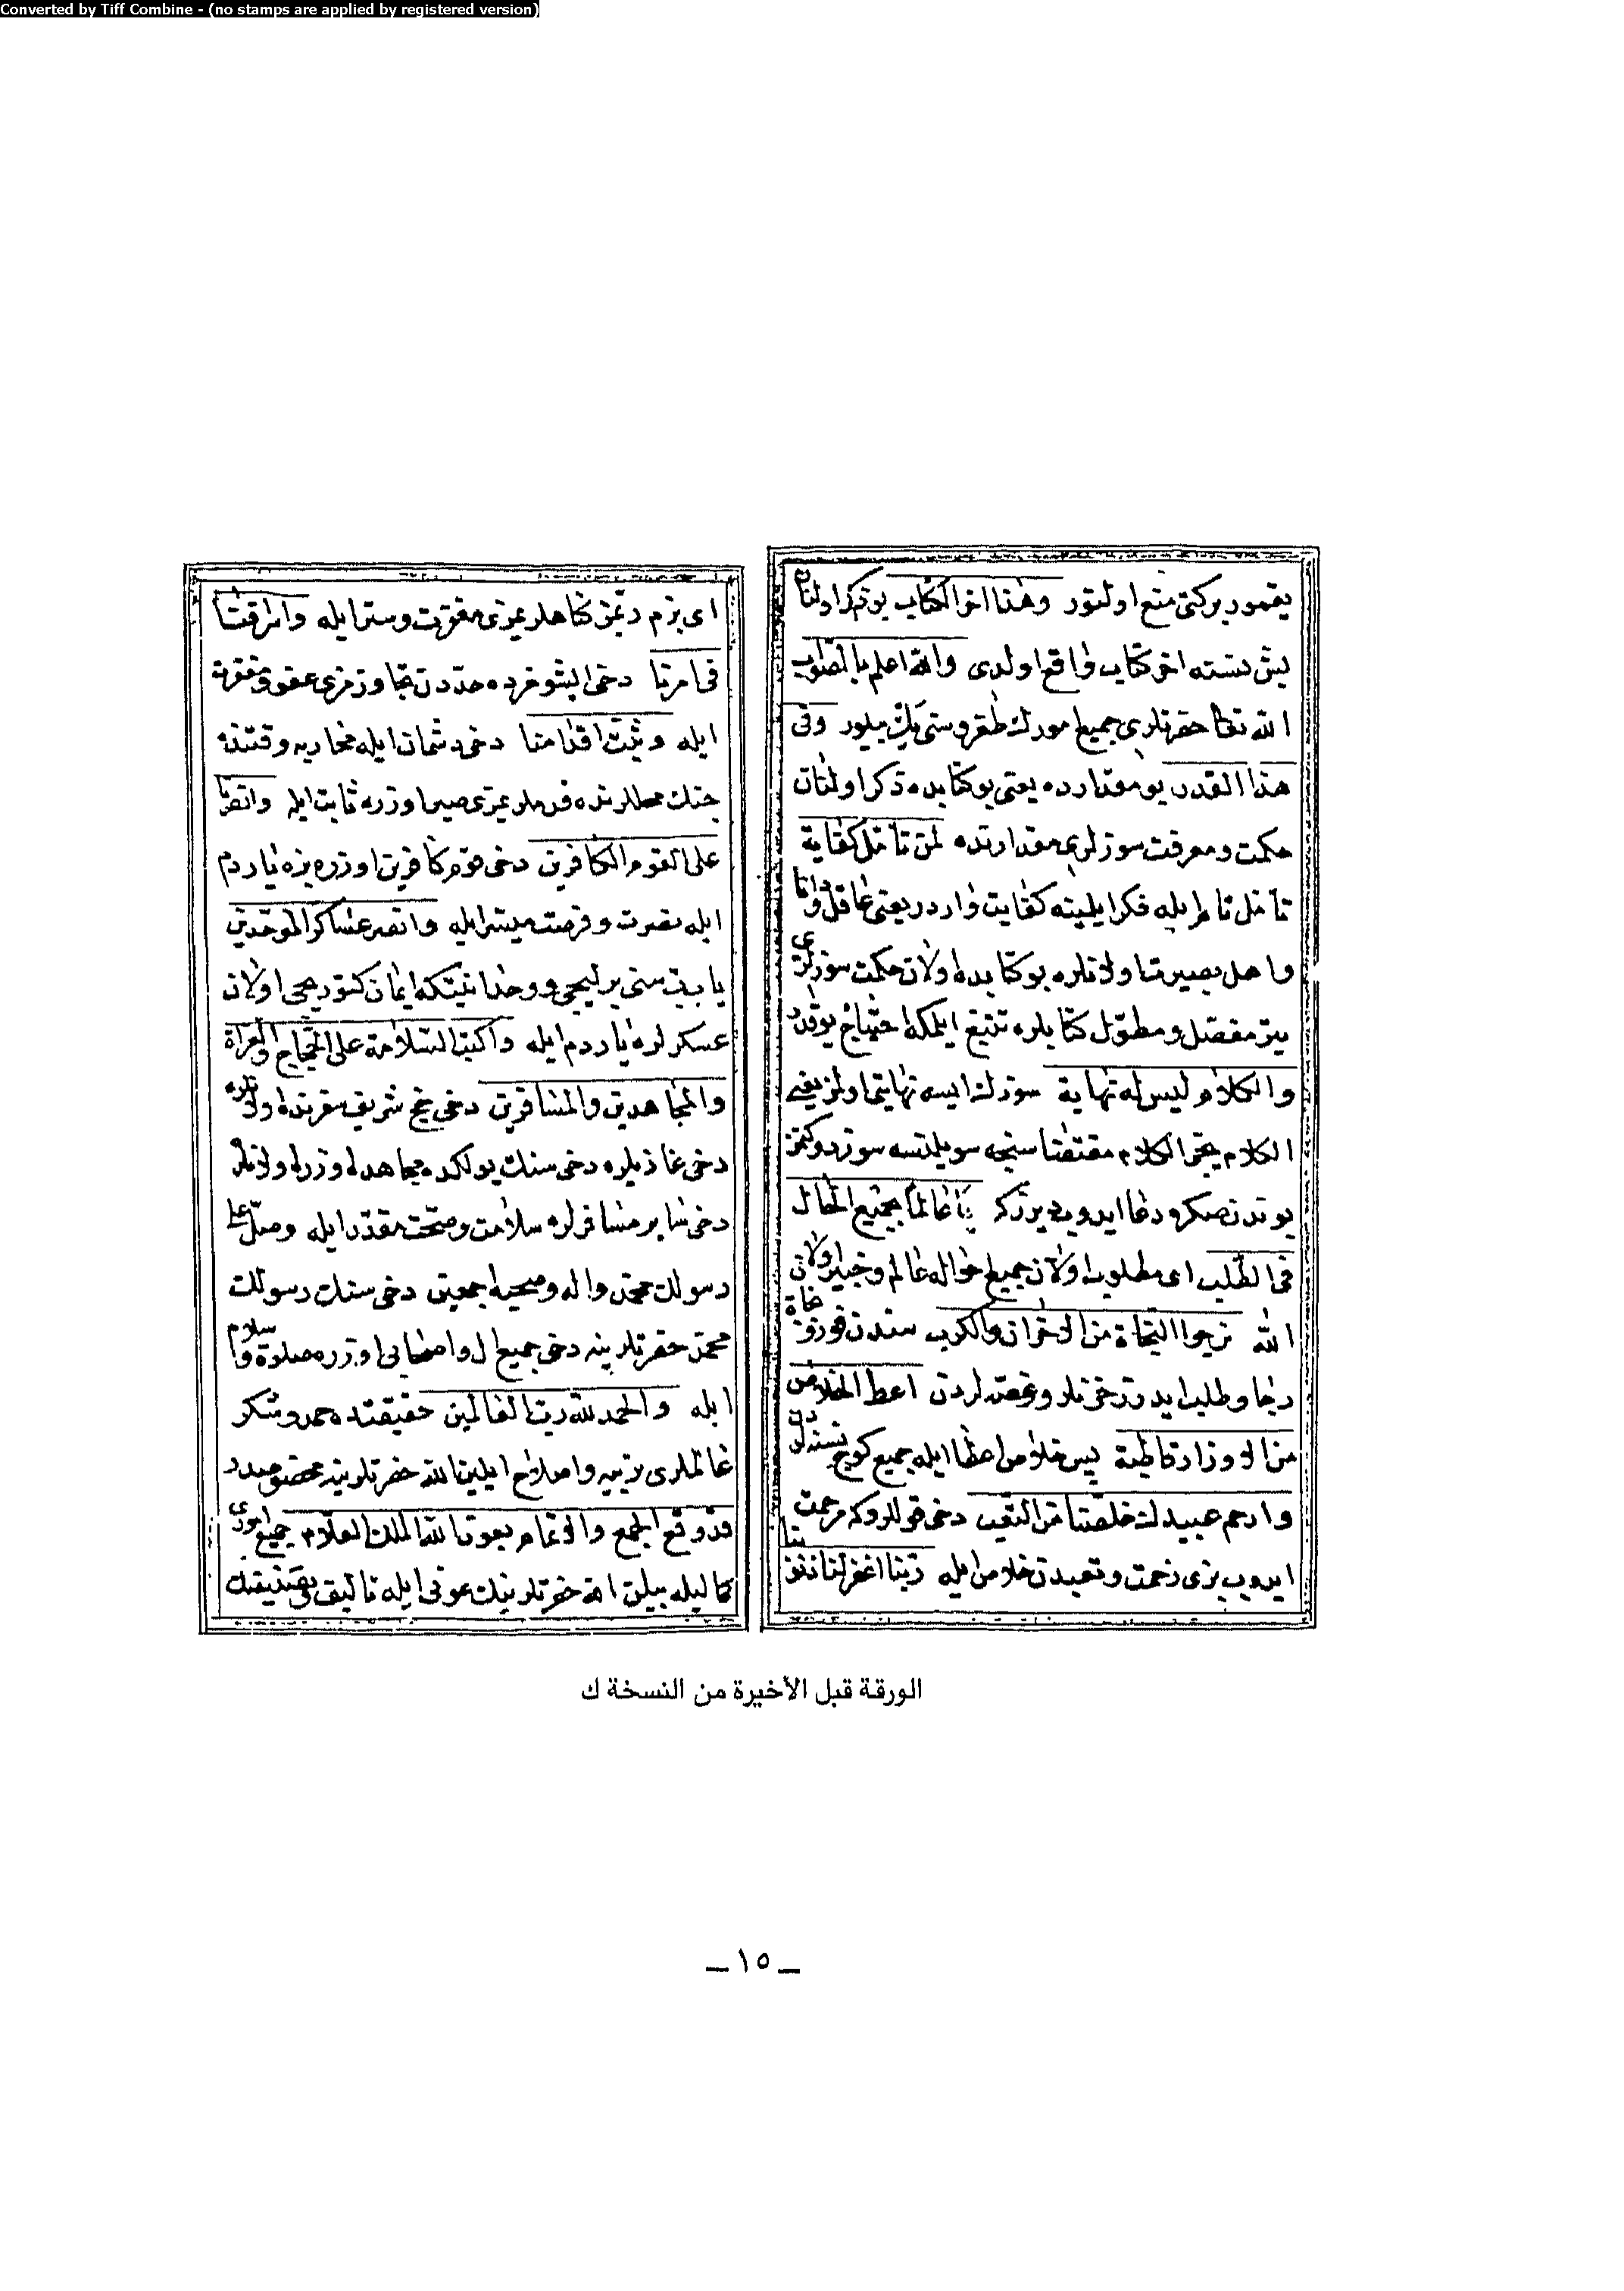 Converted by Tiff Combine - (no stamps are applied by registered version)
يغمور بركتى منع اولنور وهذا اخر الكتاب بو ذكر اولنان
بش نسنه اخر كتاب واقع اولدى والله اعلم بالصواب
الله تعالى حضرتلرى جميع امورك طغروسنى يك بيلور وفى
هذا القدر بو مقدارده يعنى بو كتابده ذكر اولنان
حكمت ومعرفت سوزلرى مقدارنده لمن تأمل كفاية
تأمل تام ايله فكر ايلينه كفايت واردر يعنى عاقل ودانا
واهل بصيرت اولانلره بو كتابده اولان حكمت سوزلرى
يتر مفصل ومطول كتابلره تتبع ايلمكه احتياج يوقدر
والكلام ليس له نهاية سوزك ايسه نهايتى اولمز يعنى
الكلام يجر الكلام مقتضاسنجه سويلنسه سوز دوكنمز
بوندن صكره دعا ايدوب ديرزكه يا عالما بجميع الحال
فى الطلب اى مطلوب اولان جميع احواله عالم وخبير اولان
الله نرجوا النجاة من الاحزان والكرب سندن قورتولمغه
رجا وطلب ايدرز حزنلر وغصه لردن اعط الخلاص
من الاوزار قاطبة پس خلاص اعطا ايله جميع كوچ نسنه لردن
وارحم عبيدك خلصنا من التعب دخى قوللروكه مرحمت
ايدوب بزى زحمت وتعبدن خلاص ايله ربنا اغفر لنا ذنوبنا
اى بزم ربمز كناهلرمزى مغفرت وستر ايله واسرافنا
فى امرنا دخى ايشومزده حددن تجاوزمزى عفو ومغفرت
ايله وثبت اقدامنا دخى دشمان ايله محاربه وقتنده
جنك محللرنده قدملرمزى صبر اوزره ثابت ايله وانصرنا
على القوم الكافرين دخى قوم كافرين اوزره بزه ياردم
ايله نصرت وفرصت ميسر ايله وانصر عساكر الموحدين
يا رب سنى برليجى ووحدانيتكه ايمان كتوريجى اولان
عسكرلره ياردم ايله واكتب السلامة على الحجاج والغزاة
والمجاهدين والمسافرين دخى حج شريف سفرنده اولانلره
دخى غازيلره دخى سنك يولكده مجاهده اوزره اولانلره
دخى سائر مسافرلره سلامت وصحت مقدر ايله وصل على
رسولك محمد واله وصحبه اجمعين دخى سنك رسولك
محمد حضرتلرينه دخى جميع ال واصحابى اوزره صلوة وسلام
ايله والحمد لله رب العالمين حقيقتده حمد وشكر
عالملرى تربيه واصلاح ايلين الله حضرتلرينه مخصوصدر
قد وقع الجمع والاتمام بعون الله الملك العلام جميع امورى
كماليله بيلن الله حضرتلرينك عونى ايله تأليف وتصنيفك
الورقة قبل الأخيرة من النسخة ك
ــ ١٥ ــ